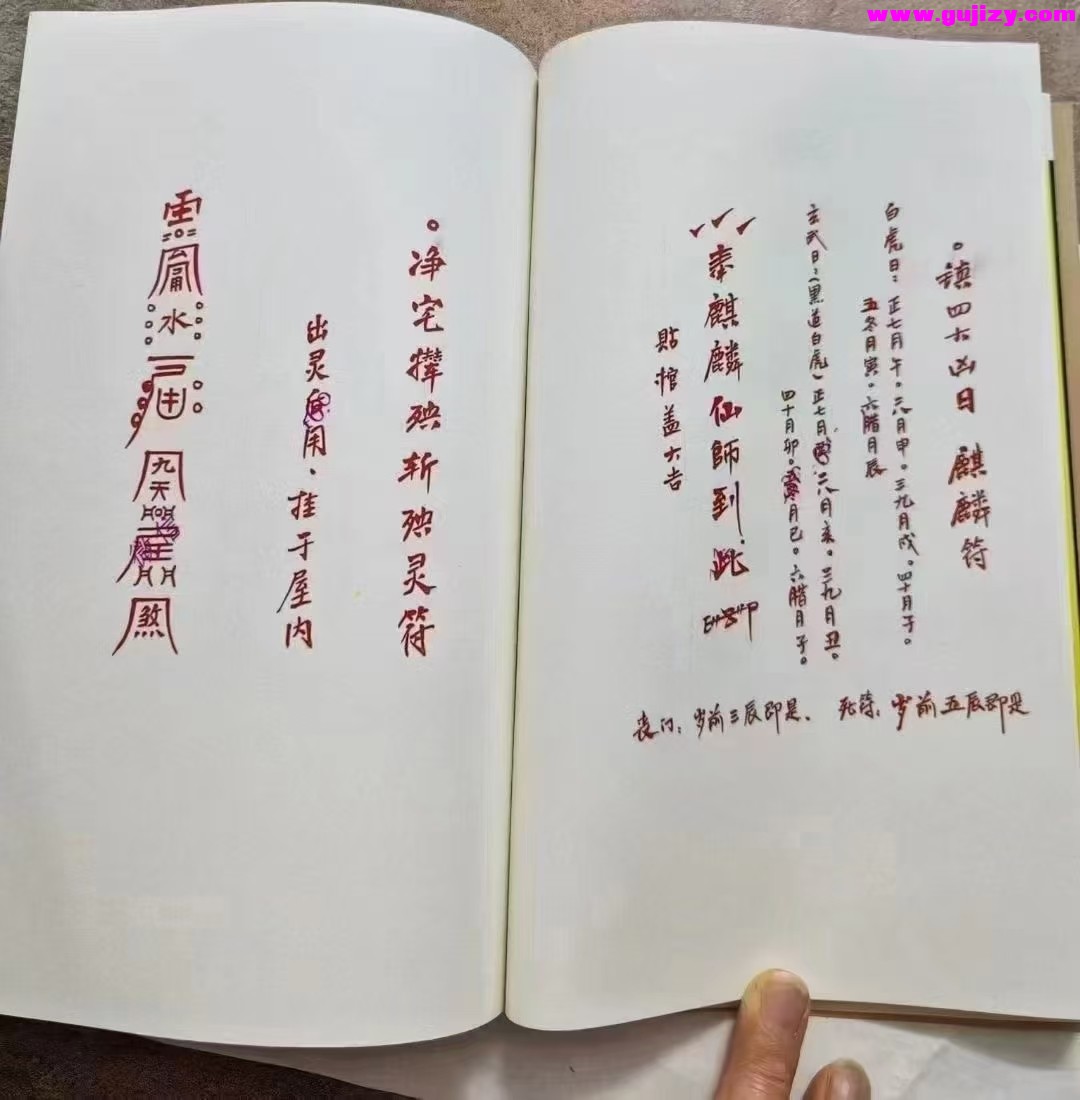 www.gujizy.com
。镇四大凶日 麒麟符
白虎日：正七月午。二八月申。三九月戌。四十月子。
五冬月寅。六腊月辰
玄武日：（黑道白虎）正七月 二八月亥。三九月丑。
四十月卯。 月巳。六腊月子。
奉麒麟仙師到此
貼棺盖大吉
丧门：岁前三辰即是、 死符：岁前五辰即是
。净宅 殃斩殃灵符
出灵 用、挂于屋内
水
九天
煞